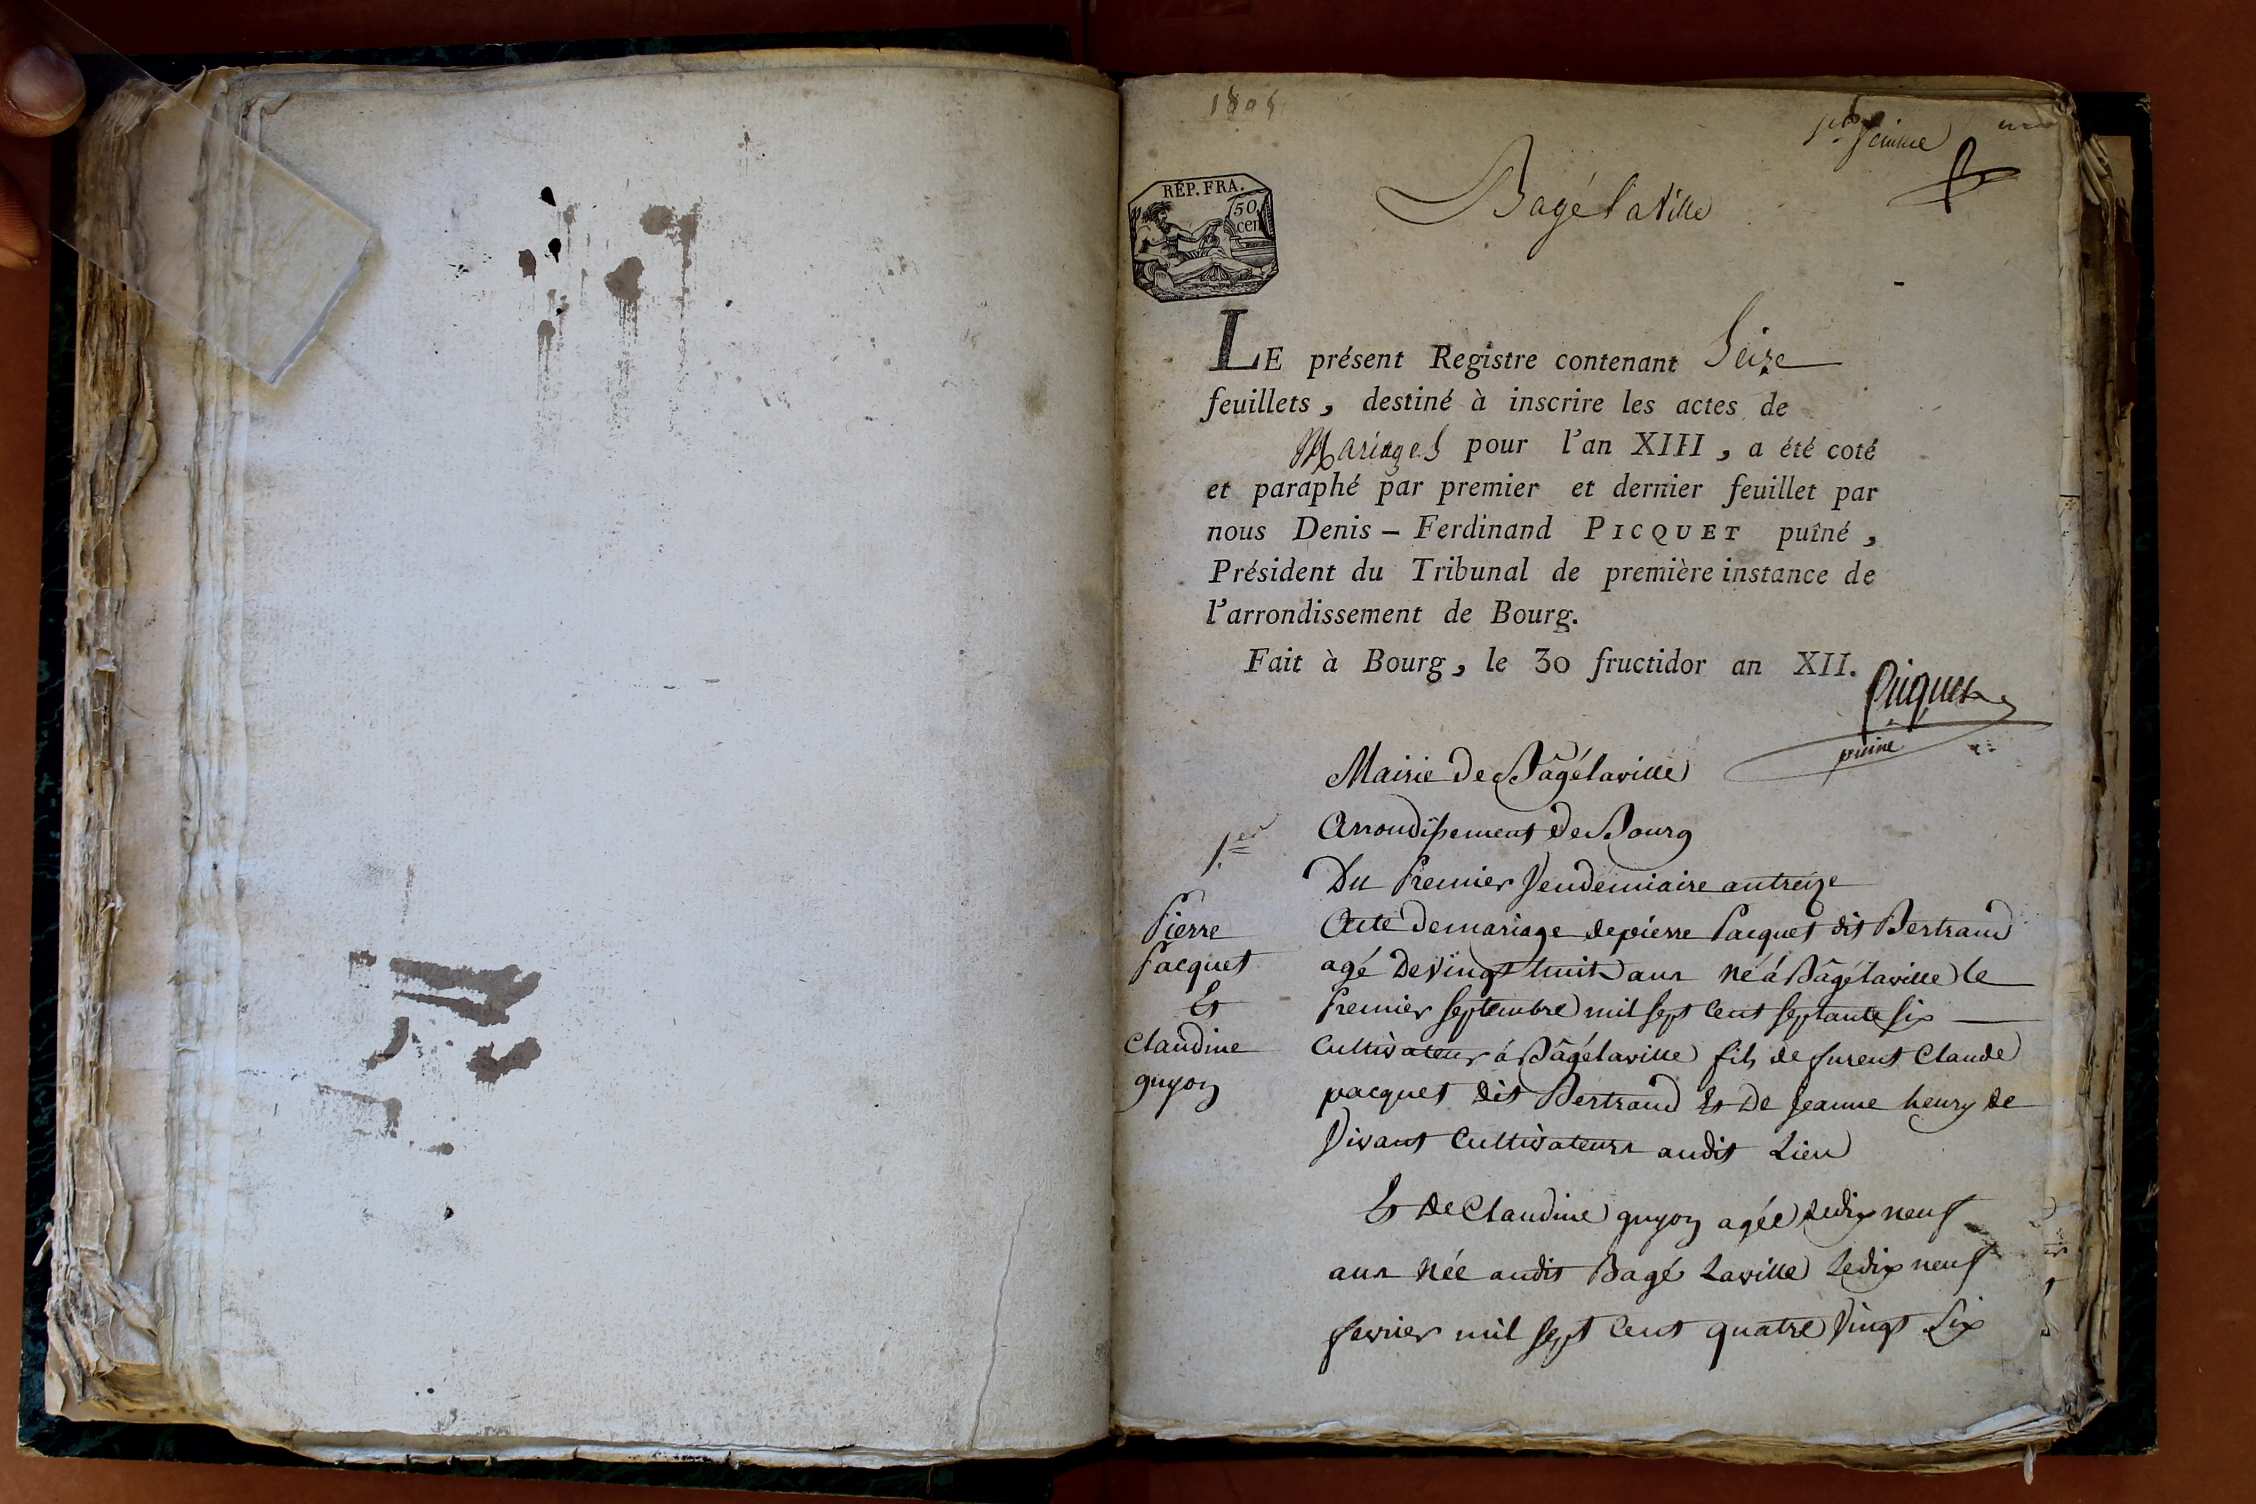 1805
Bagé la Ville
RÉP. FRA.
50
cen
LE présent Registre contenant Seize
feuillets, destiné à inscrire les actes de
Mariages pour l'an XIII, a été coté
et paraphé par premier et dernier feuillet par
nous Denis – Ferdinand PICQUET puîné,
Président du Tribunal de première instance de
l'arrondissement de Bourg.
Fait à Bourg, le 30 fructidor an XII.
Picquet
puiné
Mairie de Bâgélaville
Arrondissement de Bourg
1.er
Du Premier Vendemiaire an treize
Pierre
Pacquet
Et
Claudine
guyon
Acte de mariage de pierre Pacquet dit Bertrand
agé de vingt huit ans né á Bâgélaville le
Premier septembre mil sept cent septante six
Cultivateur á Bâgélaville fils de furent Claude
pacquet dit Bertrand Et De Jeanne henry de
Vivant Cultivateurs audit Lieu
Et de Claudine guyon agée de dix neuf
ans née audit Bagé Laville Le dix neuf
fevrier mil sept Cent quatre Vingt Six